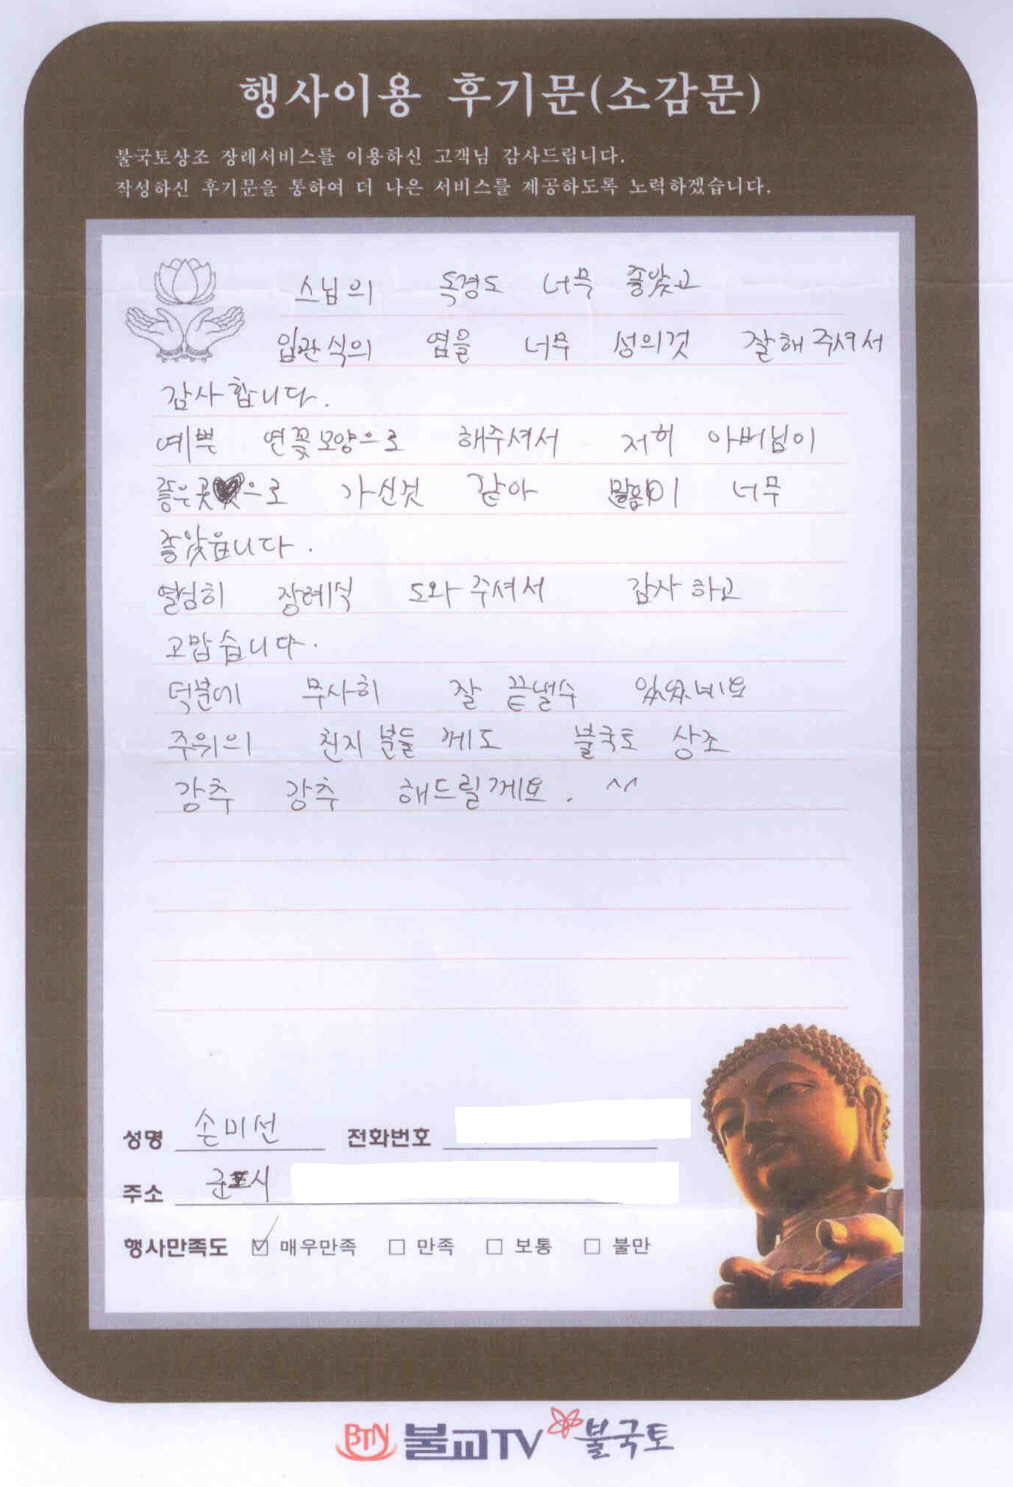 행사이용 후기문(소감문)
불국토상조 장례서비스를 이용하신 고객님 감사드립니다.
작성하신 후기문을 통하여 더 나은 서비스를 제공하도록 노력하겠습니다.
스님의 독경도 너무 좋았고
입관식의 염을 너무 성의것 잘해 주셔서
감사합니다.
예쁜 연꽃모양으로 해주셔서 저희 아버님이
좋은곳으로 가신것 같아 너무
좋았읍니다.
열심히 장례식 도와 주셔서 감사 하고
고맙습니다.
덕분에 무사히 잘 끝낼수 있었네요
주위의 친지 분들 께도 불국토 상조
강추 강추 해드릴께요. ^^
성명 손미선 전화번호
주소 군포시
행사만족도 ☑ 매우만족 □ 만족 □ 보통 □ 불만
BTN 불교TV 불국토